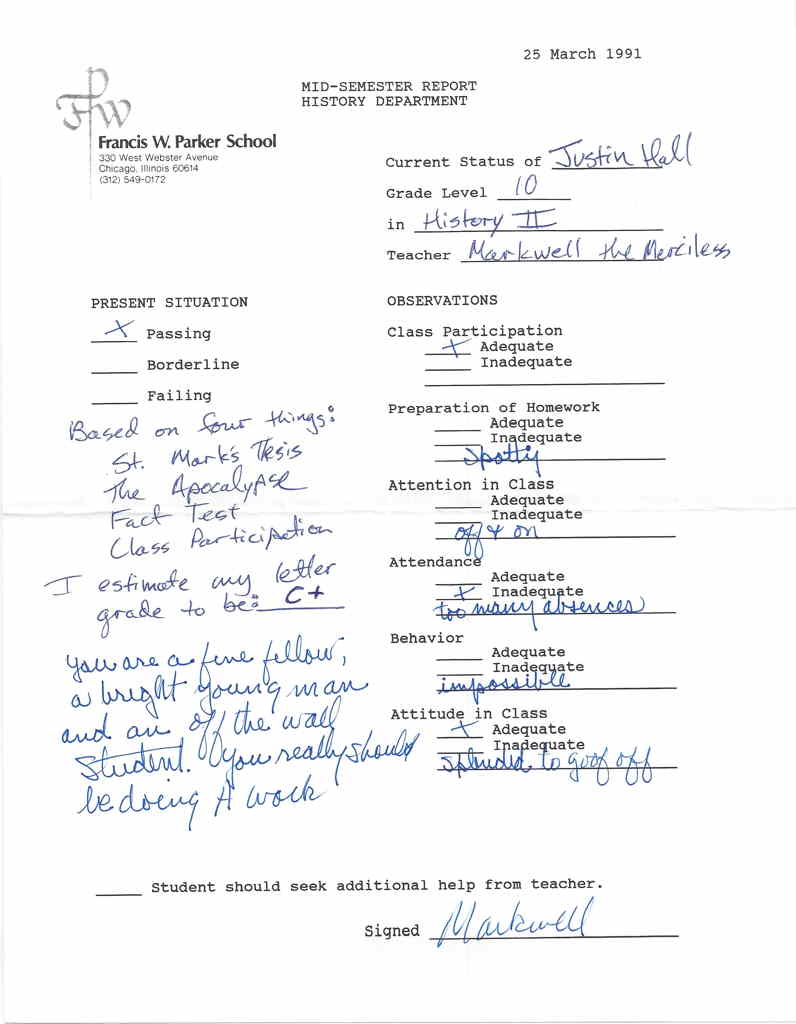 25 March 1991
MID-SEMESTER REPORT
HISTORY DEPARTMENT
FPW
Francis W. Parker School
330 West Webster Avenue
Chicago, Illinois 60614
(312) 549-0172
Current Status of Justin Hall
Grade Level 10
in History II
Teacher Markwell the Merciless
PRESENT SITUATION
X Passing
Borderline
Failing
Based on four things:
St. Mark's Tesis
The Apocalypse
Fact Test
Class Participation
I estimate my letter
grade to be: C+
you are a fine fellow,
a bright young man
and an off the wall
student. You really should
be doing A work
OBSERVATIONS
Class Participation
X Adequate
Inadequate
Preparation of Homework
Adequate
Inadequate
spotty
Attention in Class
Adequate
Inadequate
off & on
Attendance
Adequate
X Inadequate
too many absences
Behavior
Adequate
Inadequate
impossible
Attitude in Class
X Adequate
Inadequate
splendid to goof off
Student should seek additional help from teacher.
Signed Markwell